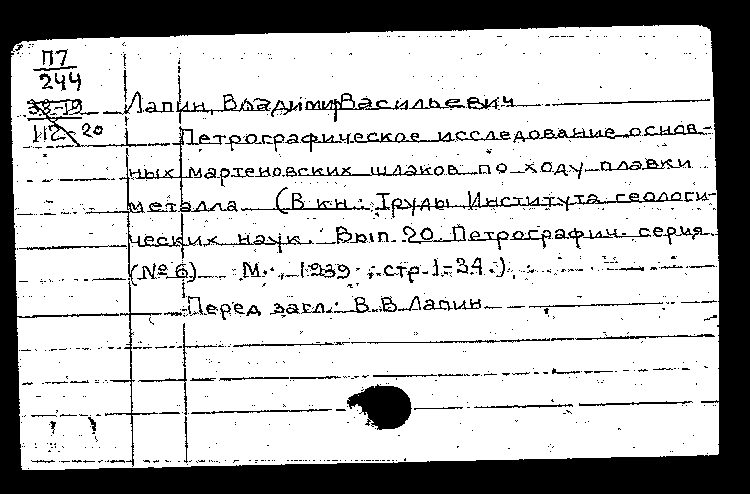 П7
244
38-19
112-20
Лапин, Владимир Васильевич
Петрографическое исследование основ-
ных мартеновских шлаков по ходу плавки
металла. (В кн.: Труды Института геологи-
ческих наук. Вып. 20. Петрографич. серия
(№ 6). М., 1939, стр. 1-34.)
Перед загл.: В.В. Лапин